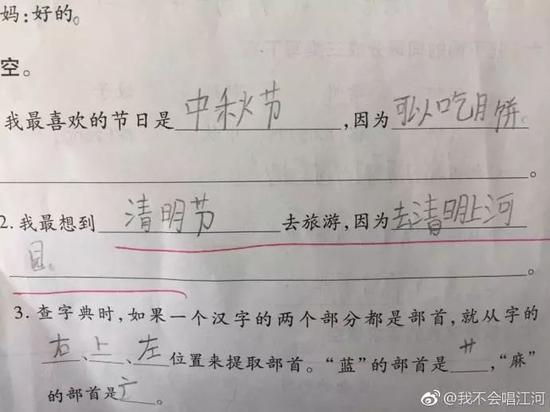 妈:好的。
空。
我最喜欢的节日是 中秋节 ,因为 可以吃月饼
。
2.我最想到 清明节 去旅游,因为 去清明上河
目。 。
3.查字典时,如果一个汉字的两个部分都是部首,就从字的
右、上、左 位置来提取部首。“蓝”的部首是 艹 ,“麻”
的部首是 亡 。
@我不会唱江河